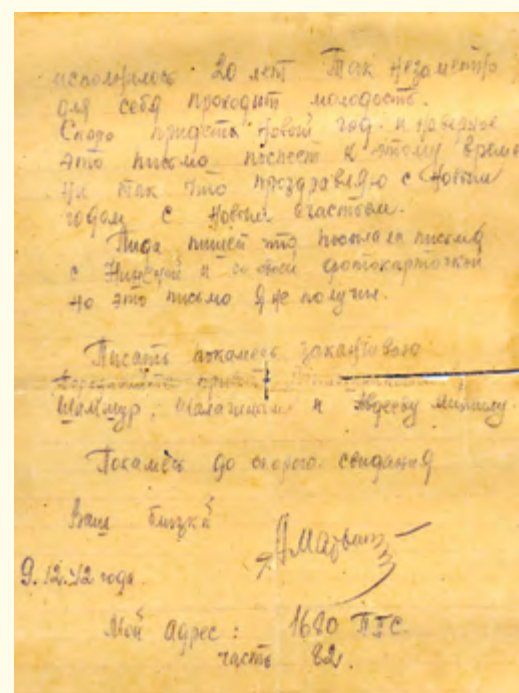 исполнилось 20 лет Так незаметно
для себя проходит молодость.
Скоро придеть новый год. и наверное
это письмо поспеет к этому време
ни так что проздравляю с Новым
годам с новым счастьем.
Лида пишет что посылала письмо
с Ниной и со своей фотокарточкой
но это письмо я не получил.
Писать покамесь заканчиваю
Передавайте привет
Шаммур, и Авдееву Михаилу.
Покамесь до скорого свидания
Ваш
9.12.42 года.
Мой адрес: 1680 ППС.
часть 82.